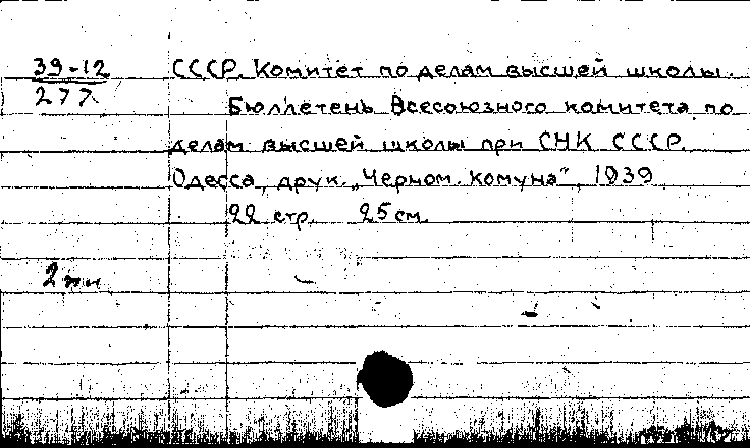 39-12
277
СССР. Комитет по делам высшей школы.
Бюллетень Всесоюзного комитета по
делам высшей школы при СНК СССР.
Одесса, друк. „Черном. комуна", 1939
22 стр. 25 см.